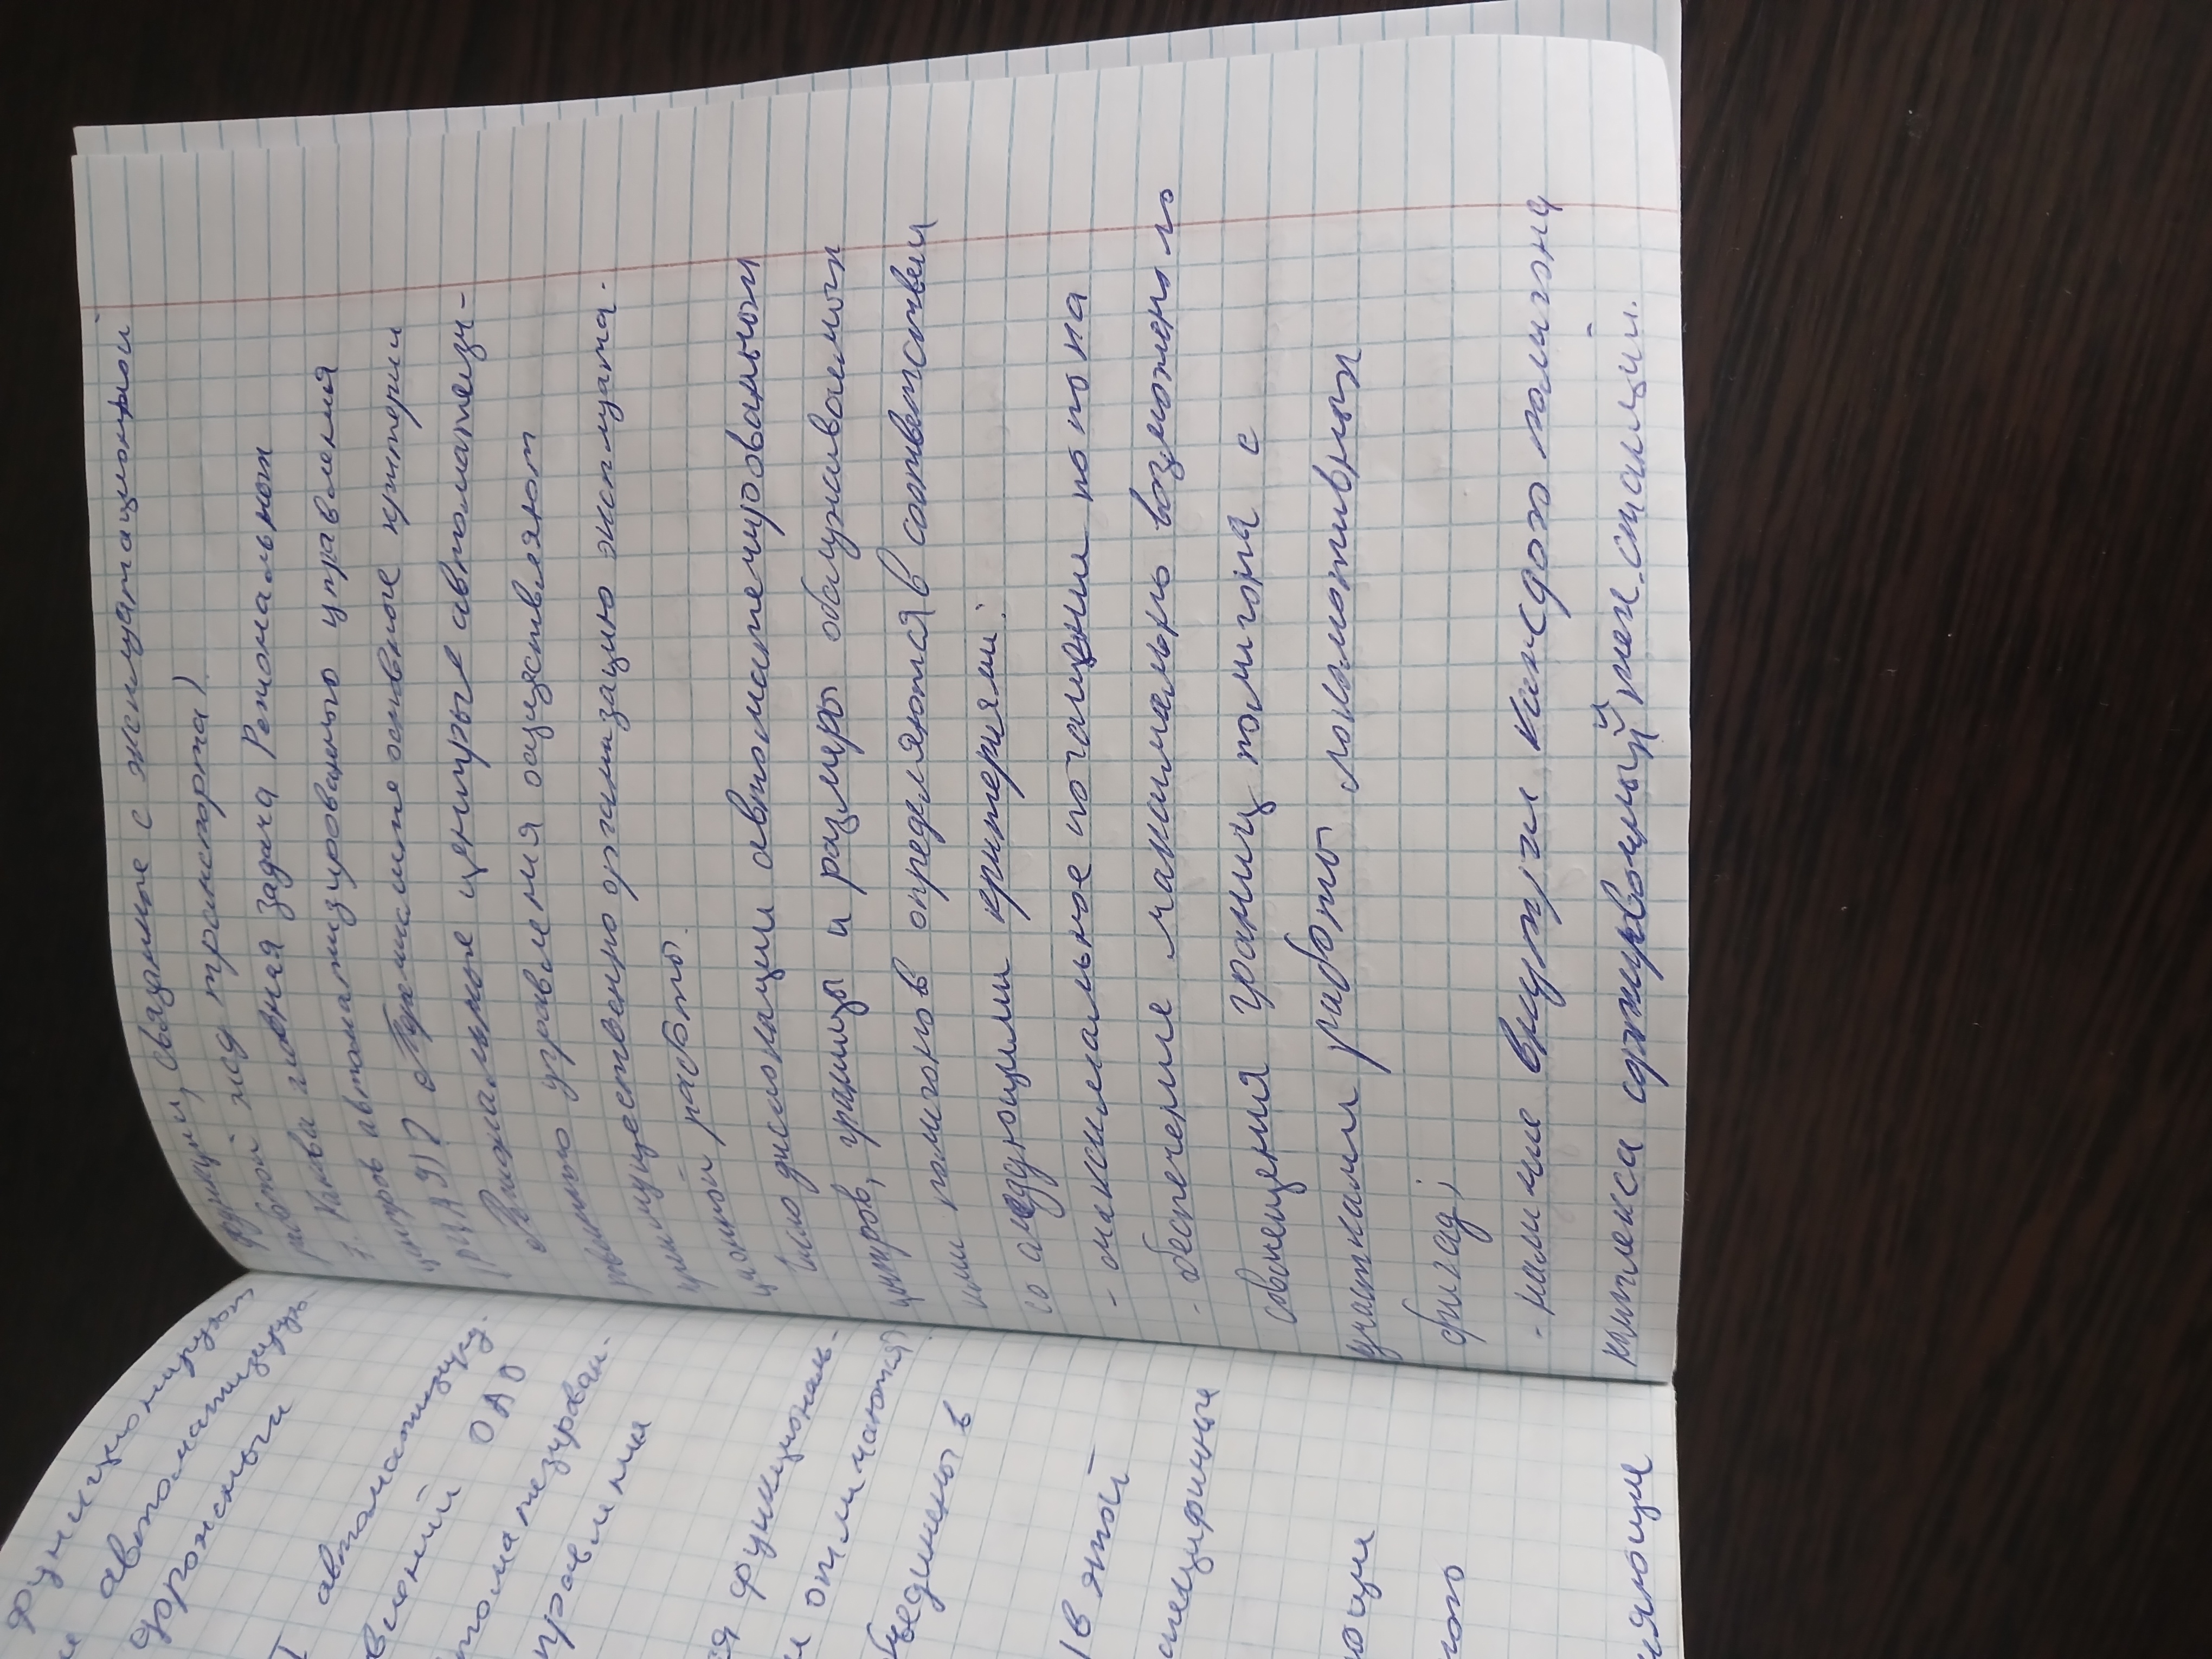 функции, связанные с эксплуатационной
работой жд транспорта)
7. Какова главная задача Региональных
центров автоматизированого управления
(РЦАУ)? Перечислите основные критерии
Региональные центры автоматизи-
рованного управления осуществляют
преимущественно организацию эксплуата-
ционной работы.
Число дислокации автоматизированных
центров, границы и размеры обслуживаемых
ими полигонов определяются в соответствии
со следующими критериями:
- максимальное погащение по на
- обеспечение максимально возможного
совмещения границ полигона с
участками работы локомотивных
бригад;
- наличие внутри каждого полигона
комплекса сджировочный и рех. станций.
функционируют
автоматизиру-
дорожный
автоматизиру-
ОАО
томатизирован-
правления
я функциональ-
отличаются
бъединены в
(в этой
специфичны
ющие
ого
няющие